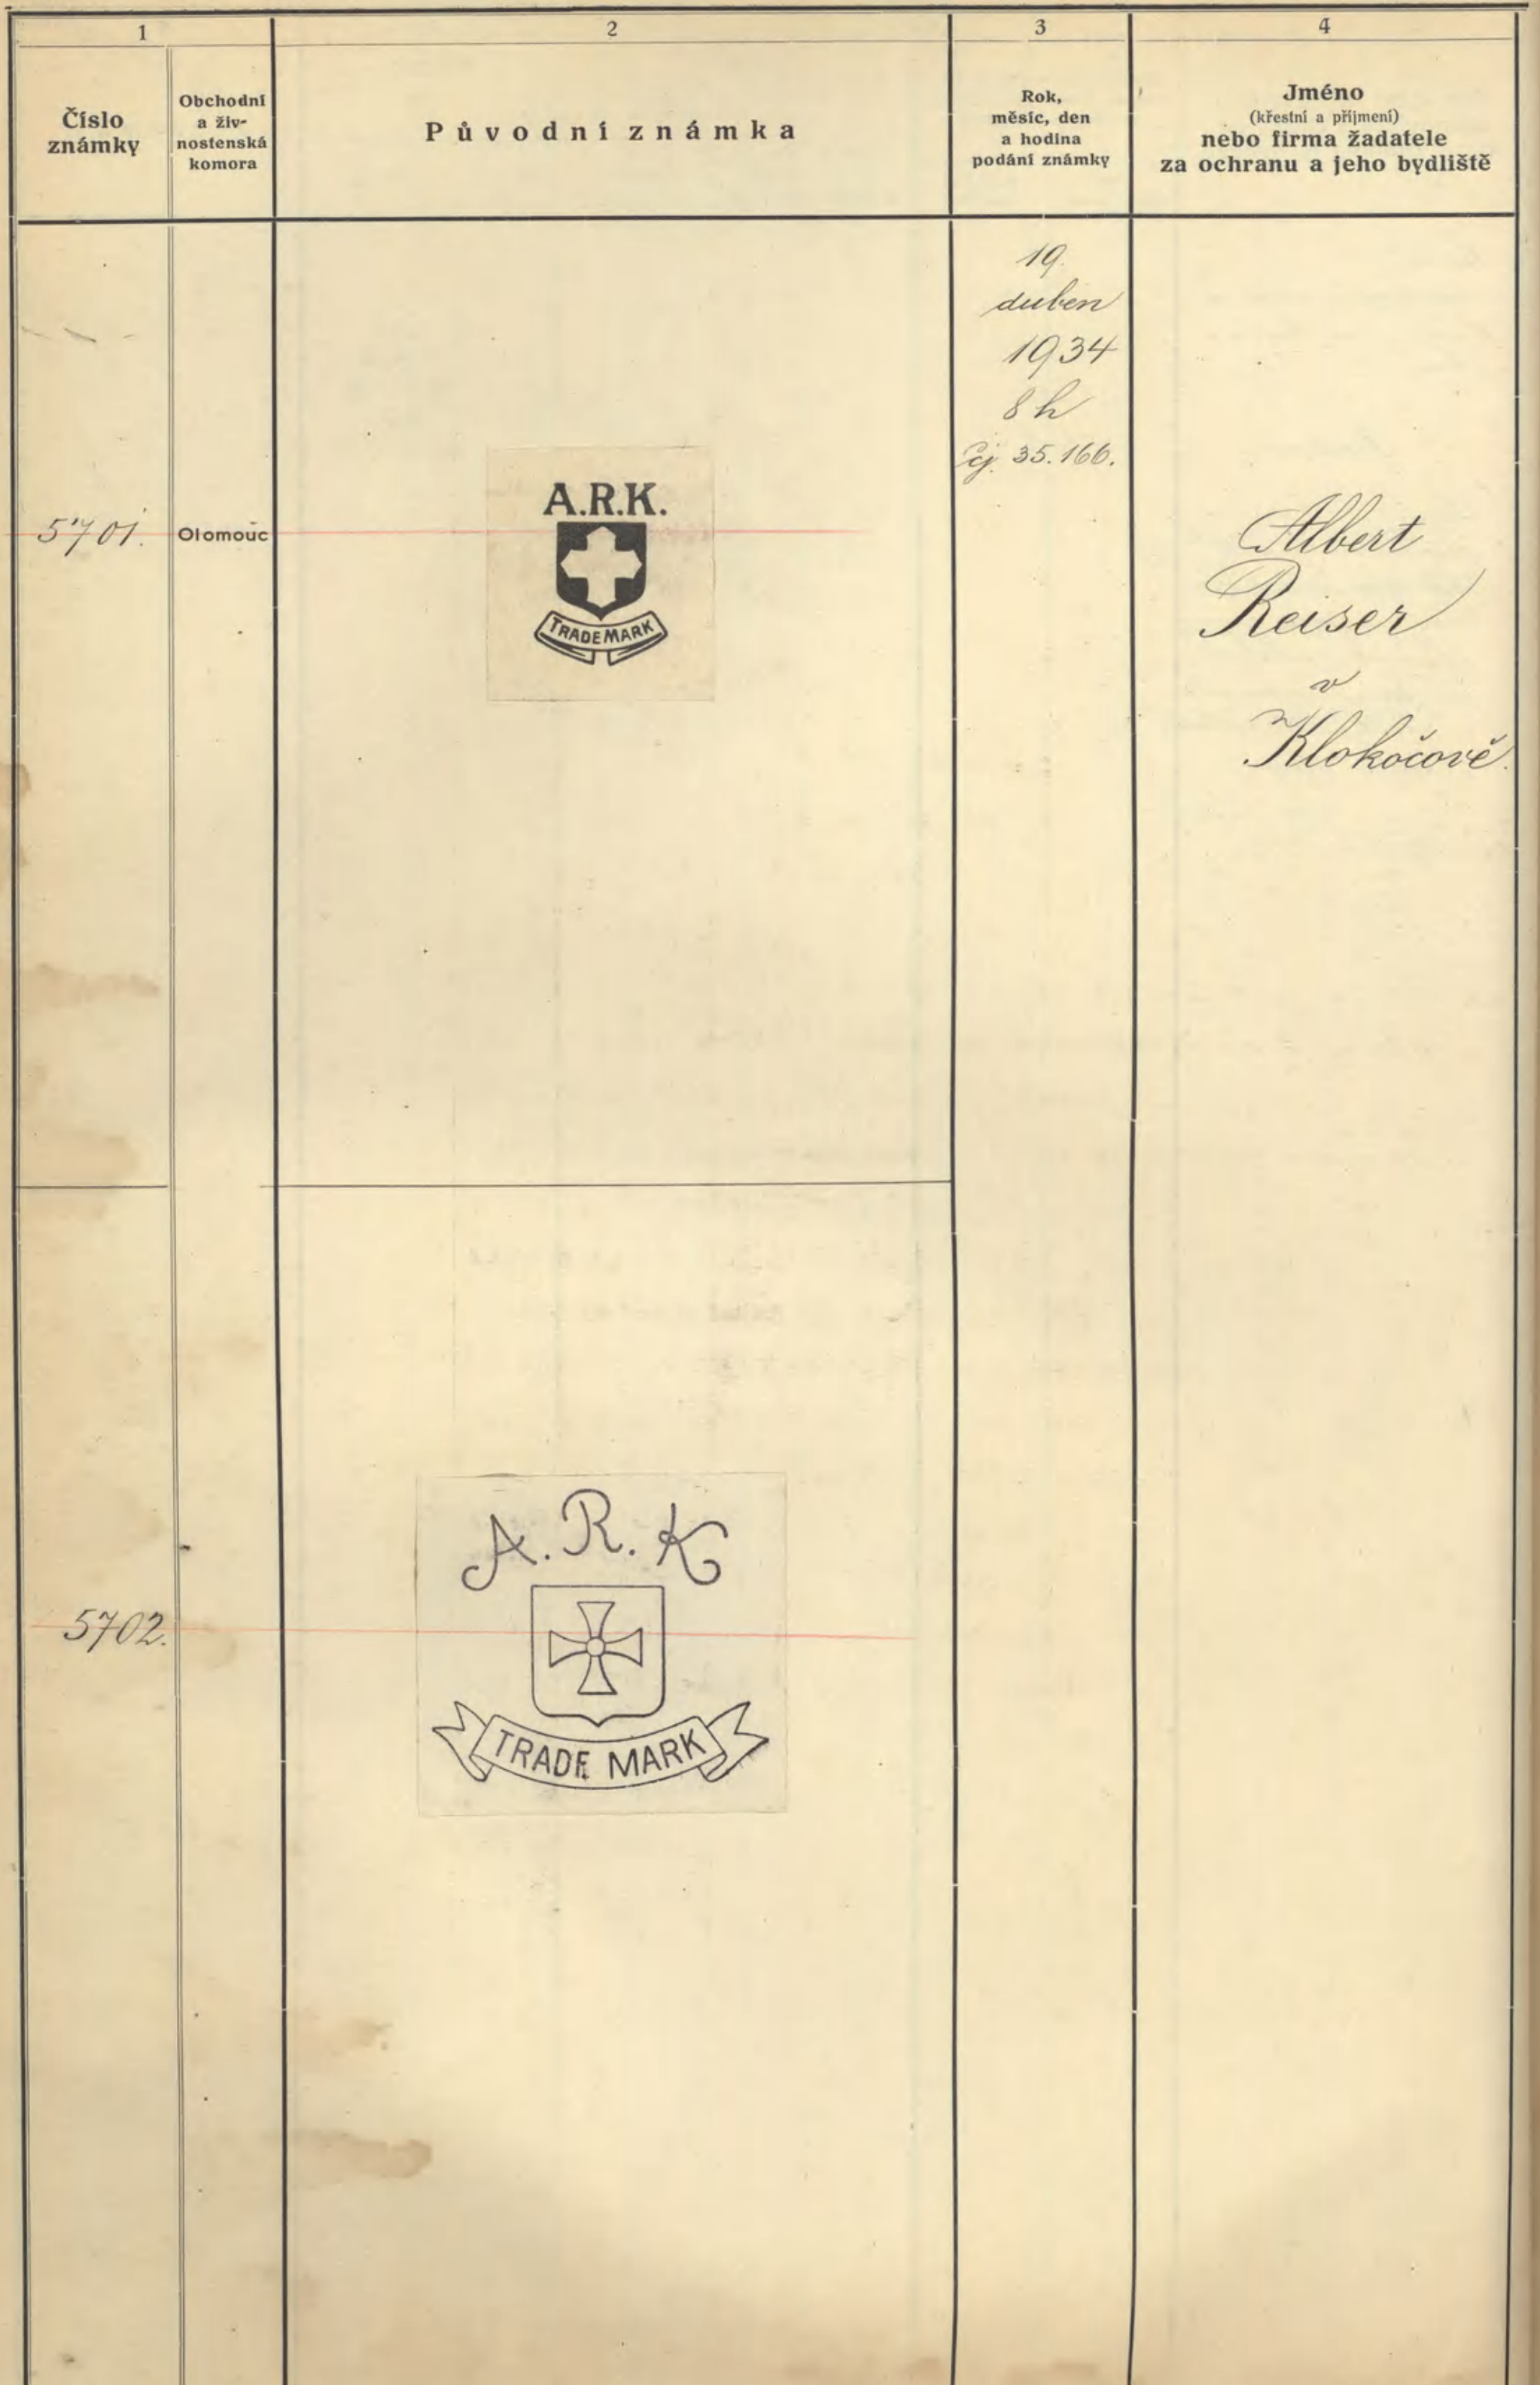 1
2
3
4
Číslo
známky
Obchodní
a živ-
nostenská
komora
Původní známka
Rok,
měsíc, den
a hodina
podání známky
Jméno
(křestní a příjmení)
nebo firma žadatele
za ochranu a jeho bydliště
19.
duben
1934
8 h
čj. 35.166.
5701.
Olomouc
A.R.K.
TRADE MARK
Albert
Reiser
v
Klokočově.
5702.
A.R.K
TRADE MARK